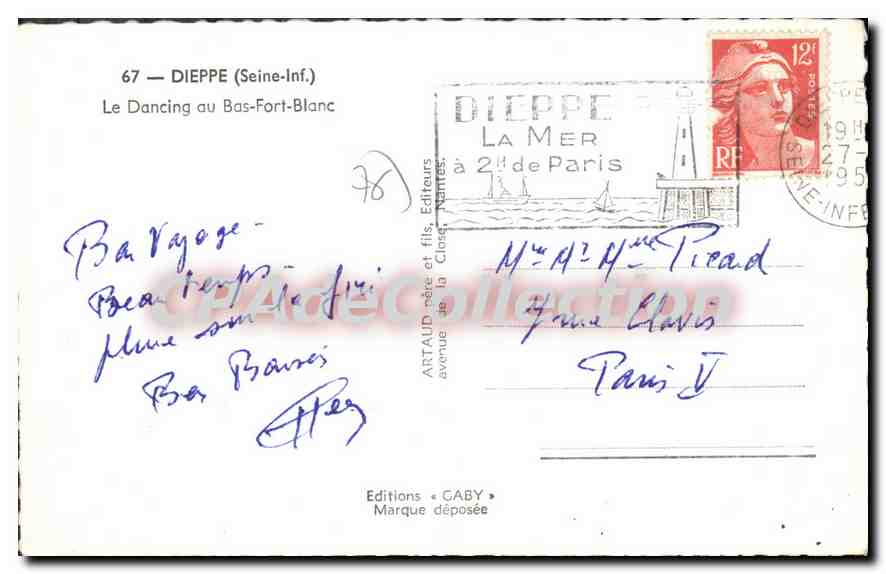 67 — DIEPPE (Seine-Inf.)
Le Dancing au Bas-Fort-Blanc
DIEPPE
LA MER
à 2H de Paris
12F
POSTES
RF
19H
27-
195
SEINE-INFE
78
ARTAUD père et fils, Editeurs
avenue de la Close, Nantes.
Bon Voyage -
Beau temps -
pluie sur la fin
Bons Baisers
CPAdeCollection
Picard
7 rue Clovis
Paris V
Editions « GABY »
Marque déposée